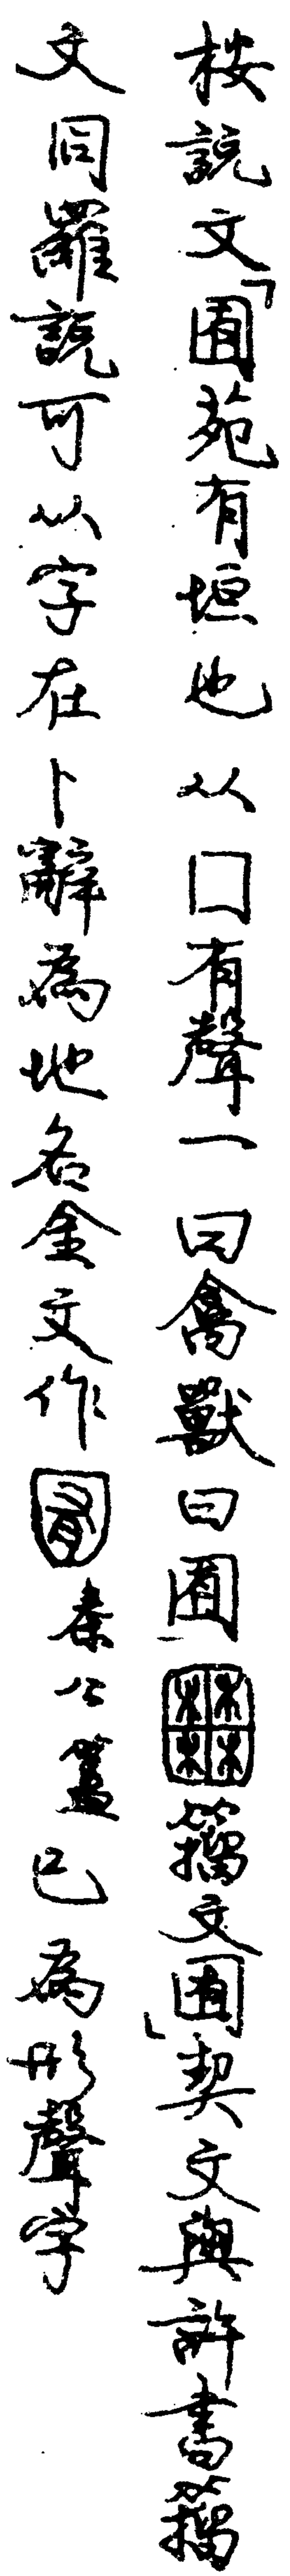 按説文「囿苑有垣也从囗有聲一曰禽獸曰囿𡈸籀文囿」契文與許書籀
文同羅説可从字在卜辭為地名金文作囿秦公簋已為形聲字